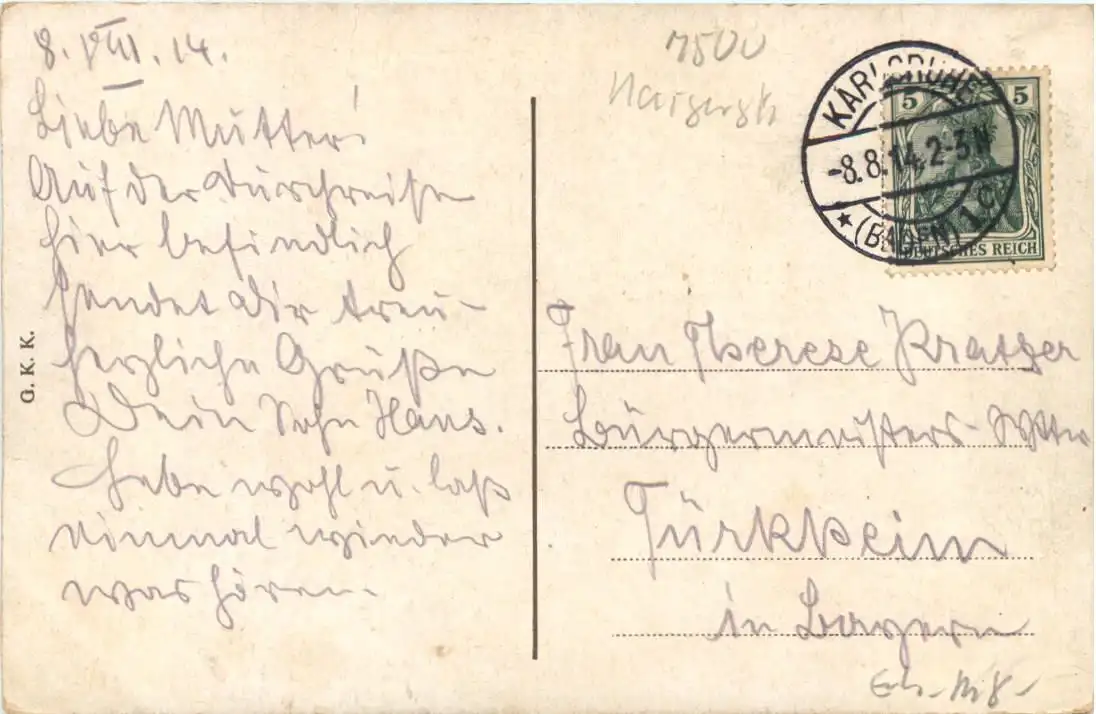 8. VIII. 14.
Liebe Mutter!
Auf der Durchreise
hier befindlich
sendet Dir treu-
herzliche Grüße
Dein Sohn Hans.
Lebe wohl u. laß
einmal wieder
was hören.
G. K. K.
7500
KARLSRUHE
-8.8.14.2-3N
★ (BADEN) 1.C.
5 5
DEUTSCHES REICH
Frau Therese Kratzer
Bürgermeisters-Wttw
Türkheim
in Bayern